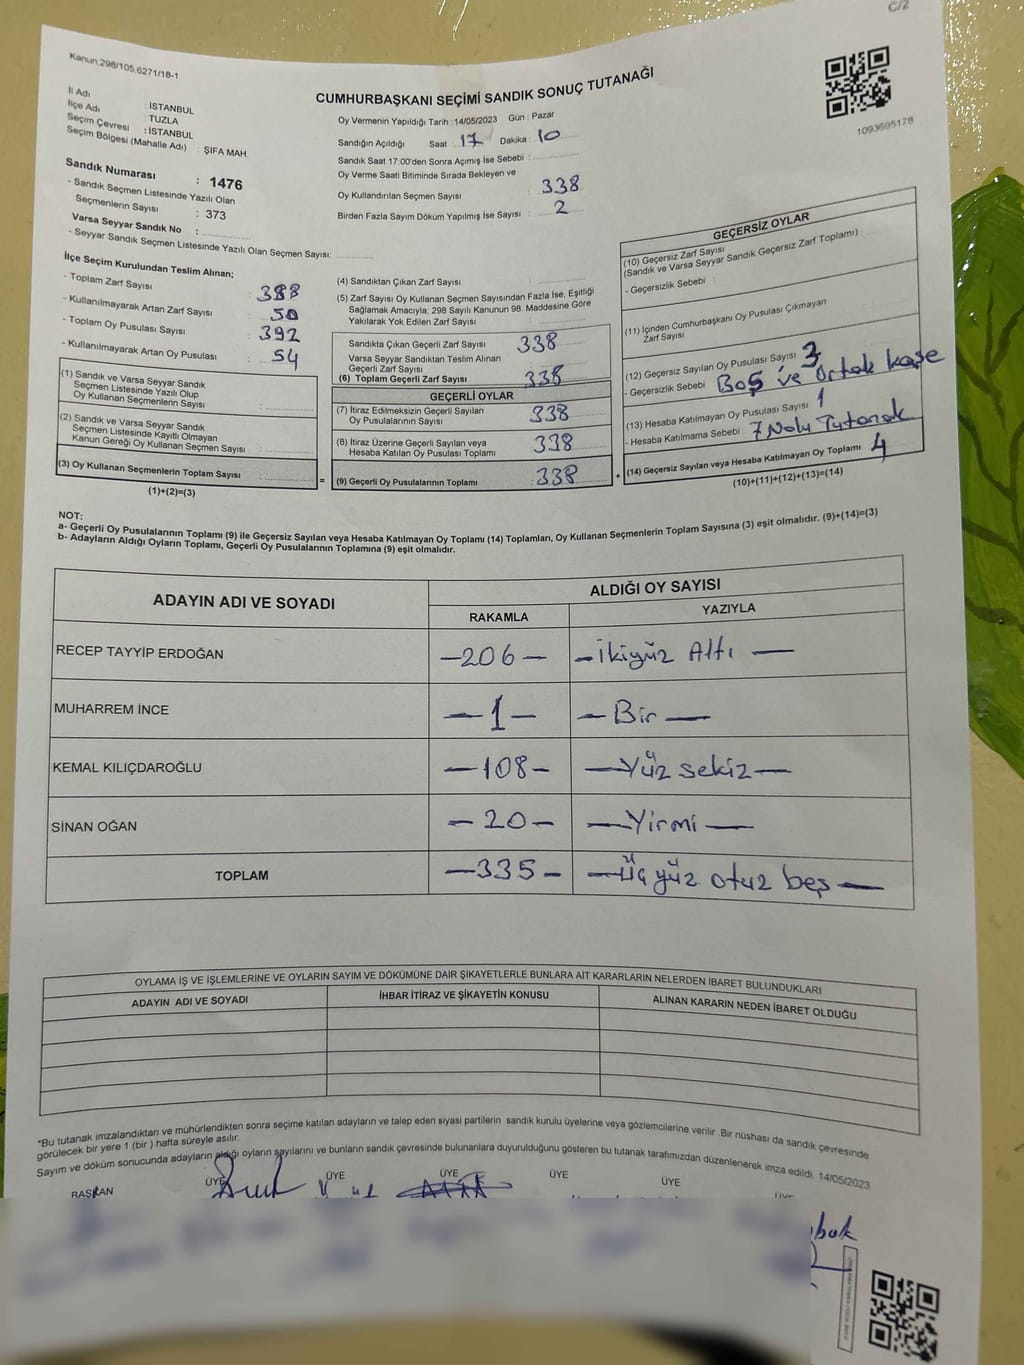 C/2
Kanun:298/105,6271/18-1
CUMHURBAŞKANI SEÇİMİ SANDIK SONUÇ TUTANAĞI
1093695178
İl Adı : İSTANBUL
İlçe Adı : TUZLA
Seçim Çevresi : İSTANBUL
Seçim Bölgesi (Mahalle Adı) : ŞİFA MAH
Sandık Numarası : 1476
- Sandık Seçmen Listesinde Yazılı Olan
Seçmenlerin Sayısı : 373
Varsa Seyyar Sandık No :
- Seyyar Sandık Seçmen Listesinde Yazılı Olan Seçmen Sayısı:
Oy Vermenin Yapıldığı Tarih : 14/05/2023 Gün : Pazar
Sandığın Açıldığı Saat : 17 Dakika : 10
Sandık Saat 17:00'den Sonra Açımış İse Sebebi :
Oy Verme Saati Bitiminde Sırada Bekleyen ve
Oy Kullandırılan Seçmen Sayısı : 338
Birden Fazla Sayım Döküm Yapılmış İse Sayısı : 2
İlçe Seçim Kurulundan Teslim Alınan;
- Toplam Zarf Sayısı : 388
- Kullanılmayarak Artan Zarf Sayısı : 50
- Toplam Oy Pusulası Sayısı : 392
- Kullanılmayarak Artan Oy Pusulası : 54
(1) Sandık ve Varsa Seyyar Sandık
Seçmen Listesinde Yazılı Olup
Oy Kullanan Seçmenlerin Sayısı :
(2) Sandık ve Varsa Seyyar Sandık
Seçmen Listesinde Kayıtlı Olmayan
Kanun Gereği Oy Kullanan Seçmen Sayısı :
(3) Oy Kullanan Seçmenlerin Toplam Sayısı :
(1)+(2)=(3)
(4) Sandıktan Çıkan Zarf Sayısı :
(5) Zarf Sayısı Oy Kullanan Seçmen Sayısından Fazla İse, Eşitliği
Sağlamak Amacıyla; 298 Sayılı Kanunun 98. Maddesine Göre
Yakılarak Yok Edilen Zarf Sayısı :
Sandıkta Çıkan Geçerli Zarf Sayısı : 338
Varsa Seyyar Sandıktan Teslim Alınan
Geçerli Zarf Sayısı :
(6) Toplam Geçerli Zarf Sayısı : 338
GEÇERLİ OYLAR
(7) İtiraz Edilmeksizin Geçerli Sayılan
Oy Pusulalarının Sayısı : 338
(8) İtiraz Üzerine Geçerli Sayılan veya
Hesaba Katılan Oy Pusulası Toplamı : 338
= (9) Geçerli Oy Pusulalarının Toplamı : 338 +
GEÇERSİZ OYLAR
(10) Geçersiz Zarf Sayısı
(Sandık ve Varsa Seyyar Sandık Geçersiz Zarf Toplamı) :
- Geçersizlik Sebebi :
(11) İçinden Cumhurbaşkanı Oy Pusulası Çıkmayan
Zarf Sayısı :
(12) Geçersiz Sayılan Oy Pusulası Sayısı : 3
- Geçersizlik Sebebi : Boş ve ortak kaşe
(13) Hesaba Katılmayan Oy Pusulası Sayısı : 1
- Hesaba Katılmama Sebebi : 7 Nolu Tutanak
(14) Geçersiz Sayılan veya Hesaba Katılmayan Oy Toplamı 4
(10)+(11)+(12)+(13)=(14)
NOT:
a- Geçerli Oy Pusulalarının Toplamı (9) ile Geçersiz Sayılan veya Hesaba Katılmayan Oy Toplamı (14) Toplamları, Oy Kullanan Seçmenlerin Toplam Sayısına (3) eşit olmalıdır. (9)+(14)=(3)
b- Adayların Aldığı Oyların Toplamı, Geçerli Oy Pusulalarının Toplamına (9) eşit olmalıdır.
ADAYIN ADI VE SOYADI ALDIĞI OY SAYISI
RAKAMLA YAZIYLA
RECEP TAYYİP ERDOĞAN —206— —İkiyüz Altı —
MUHARREM İNCE —1— —Bir—
KEMAL KILIÇDAROĞLU —108— —Yüz sekiz—
SİNAN OĞAN —20— —Yirmi—
TOPLAM —335— —Üçyüz otuz beş—
OYLAMA İŞ VE İŞLEMLERİNE VE OYLARIN SAYIM VE DÖKÜMÜNE DAİR ŞİKAYETLERLE BUNLARA AİT KARARLARIN NELERDEN İBARET BULUNDUKLARI
ADAYIN ADI VE SOYADI İHBAR İTİRAZ VE ŞİKAYETİN KONUSU ALINAN KARARIN NEDEN İBARET OLDUĞU
*Bu tutanak imzalandıktan ve mühürlendikten sonra seçime katılan adayların ve talep eden siyasi partilerin sandık kurulu üyelerine veya gözlemcilerine verilir .Bir nüshası da sandık çevresinde
görülecek bir yere 1 (bir ) hafta süreyle asılır.
Sayım ve döküm sonucunda adayların aldığı oyların sayılarını ve bunların sandık çevresinde bulunanlara duyurulduğunu gösteren bu tutanak tarafımızdan düzenlenerek imza edildi. 14/05/2023
BAŞKAN ÜYE ÜYE ÜYE ÜYE ÜYE